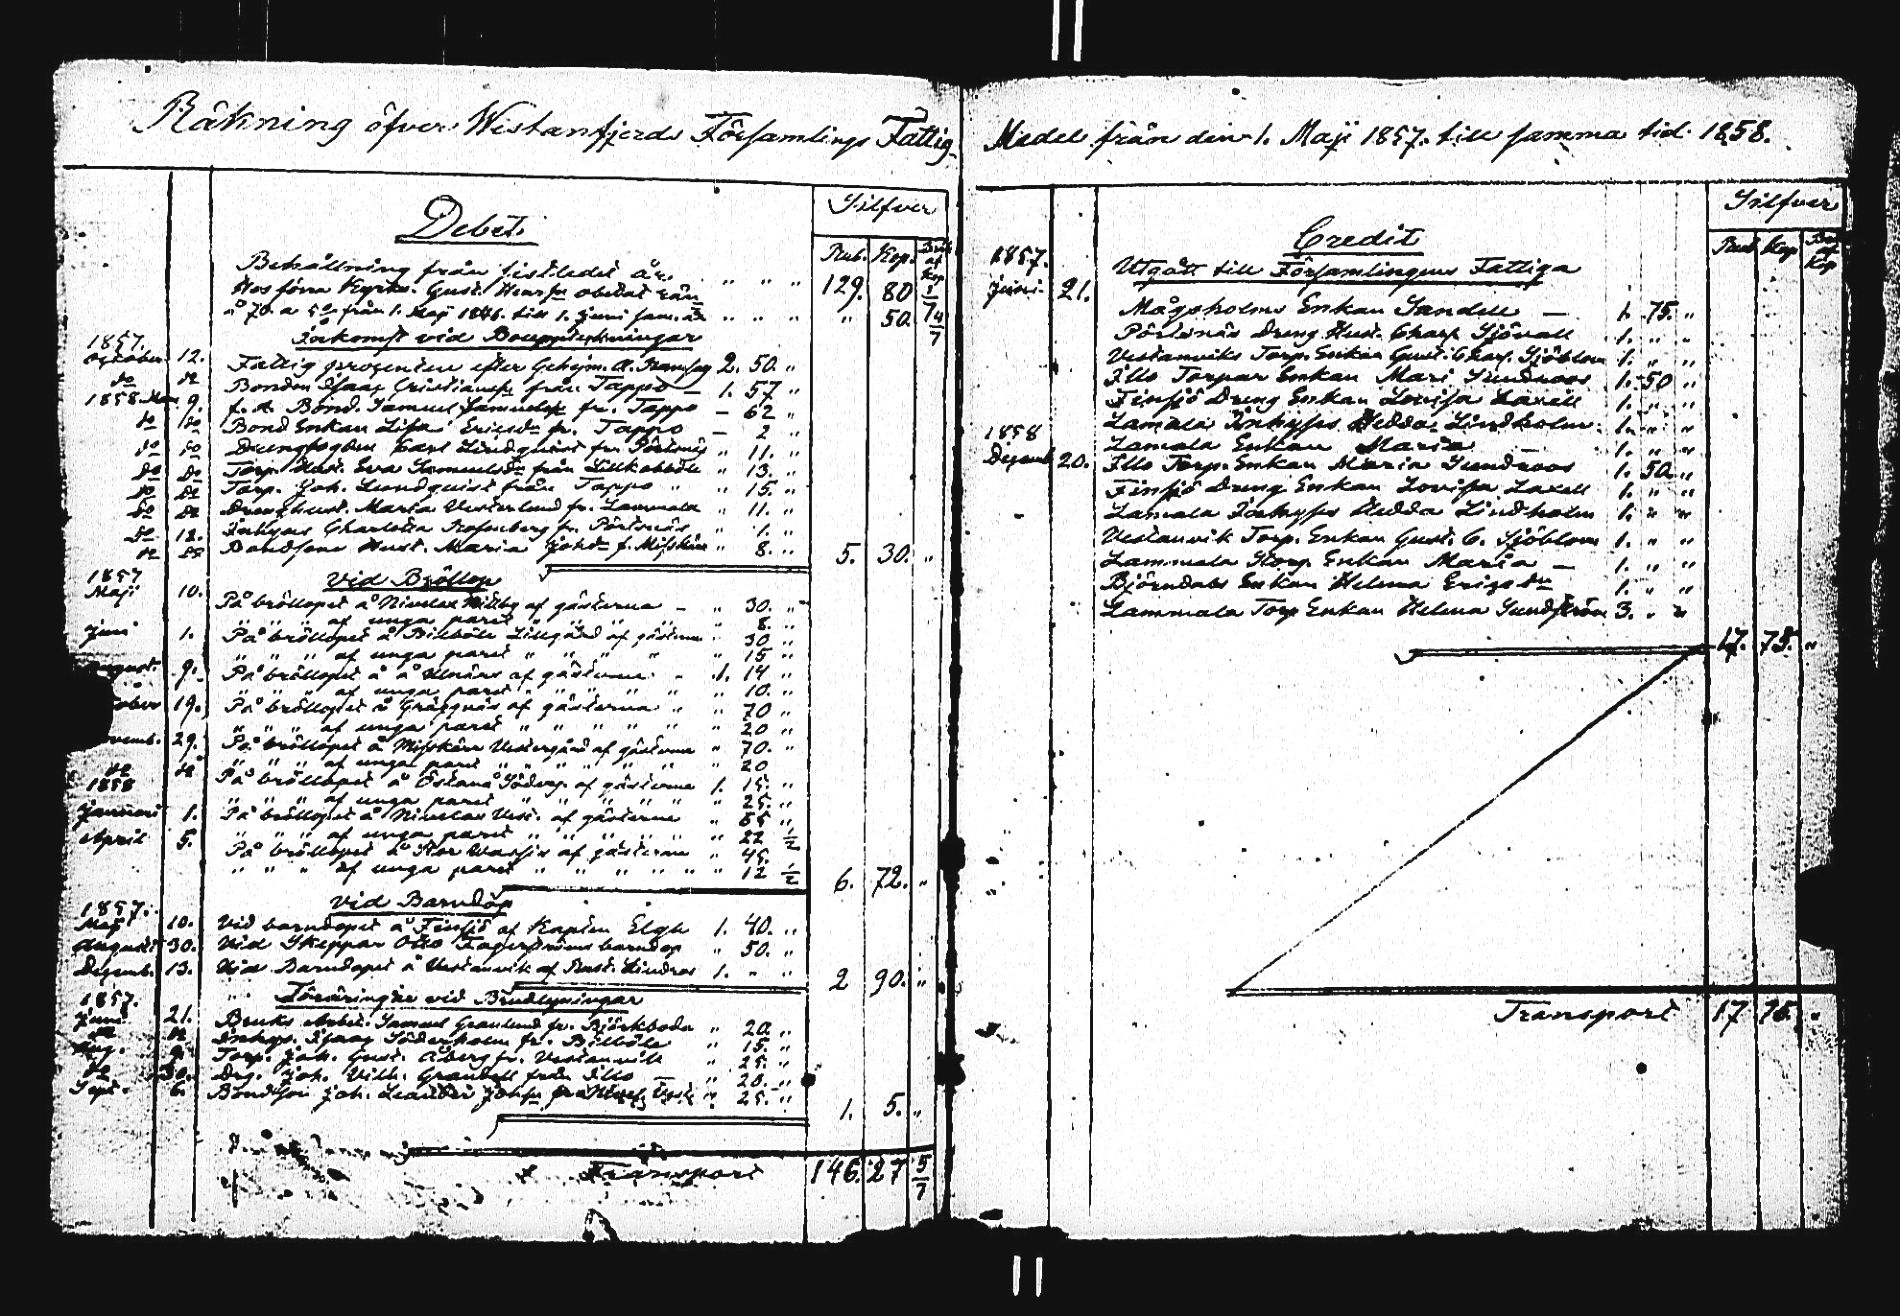 Räkning öfver Westanfjerds Församlings Fattig-
Medel från den 1. Maji 1857. till samma tid 1858.
Debet.
Silfver
Rub. Kop. Bråk af Kop
Behållning från sistledit år. " " " 129. 80 1/7
Hos förra Kyrko. Gust. obetalt rän
å 70. a 5 från 1. Maji till 1. Juni " " " " 50. 4/7
Inkomst vid Bouppteckningar
1857.
October 12. Fattig procenten efter 2. 50. "
do do Bonden Isaac från Tappo – 1. 57 "
1858 Mar 9. f. d. Bond. Samuel Samuelss fr. Tappo – 62 "
do do Bond Enkan Lisa Ericsdr fr. Tappo – 2 "
do do Drengfogden Carl Lindqvist fr. Pörtsnäs " 11. "
do do Torp. Hust. Eva Samuelsdr från " 13. "
do do Torp. Joh. Lundquist från Tappo " " 15. "
do do Dreng hust. Maria Vesterlund fr. Lammala " 11. "
do 12. Inhyses Charlotta Rosenberg fr. Pörtsnäs " 1. "
do do Hust. Maria Johdr f. Misskärr " 8. " 5. 30. "
Vid Bröllop
1857
Maji 10. På bröllopet å Nivelax af gästerna – " 30. "
" " " af unga paret " " " " " 8. "
Juni 1. På bröllopet å Billböle Lillgård af gästerna " 30 "
" " " af unga paret " " " " 15 "
August. 9. På bröllopet å af gästerna " 1. 14 "
" " " af unga paret " " " " " 10. "
ober 19. På bröllopet å Gräggnäs af gästerna " " 70 "
" " " af unga paret " " " " " 20 "
vemb. 29. På bröllopet å Misskärr Vestergård af gästerna " 70. "
" " " af unga paret " " " " " 20
do do På bröllopet å Östanå Söderg. af gästerna 1. 15. "
1858
" " " af unga paret " " " " " 25. "
Januari 1. På bröllopet å Nivelax Vest. af gästerna " 55 "
" " " af unga paret " " " " " 22 1/2
April 5. På bröllopet å Stor af gästerna " 45.
" " " af unga paret " " " " " " 12 1/2 6. 72. "
Vid Barndop
1857.
Maji 10. Vid barndopet å Finsjö af Kapten Elgh 1. 40. "
Augusti 30. Vid Skeppar Otto Fagerströms barndop " 50. "
Dezemb. 13. Vid Barndopet å Vestanvik af Rust. Lindros 1. " " 2 90. "
Föräringar vid Brudlysningar
1857.
Juni 21. Bruks Arbet. Samuel Granlund fr. Björkboda " 20. "
do do Inhys. Isaac Söderholm fr. Billböle " 15. "
Aug. 9. Torp. Joh. Gust. Åberg fr. Vestanvik " 25. "
do 30. Drg. Joh. Vilh. från Illo " 20. "
Sept. 6. Bondeson Joh. Leander Johss " 25. " 1. 5. "
Transport 146. 27 5/7
Credit
Silfver
Rub. Kop Brå af Kop
1857. Utgått till Församlingens Fattiga
Juni 21. Mågsholms Enkan Sandell – 1. 75. "
Pörtsnäs Dreng Hust. Charl. Sjövall 1. " "
Vestanviks Torp. Enkan Gust. Charl. Sjöblom 1. " "
Illo Torpar Enkan Mari Sundroos 1. 50 "
Finsjö Dreng Enkan Lovisa Laxell 1. " "
Lamala Inhyses Hedda Lindholm 1. " "
1858 Lamala Enkan Maria – 1. " "
Dezemb 20. Illo Torp. Enkan Maria Sundroos 1. 50. "
Finsjö Dreng Enkan Lovisa Laxell 1. " "
Lamala Inhyses Hedda Lindholm 1. " "
Vestanvik Torp. Enkan Gust. C. Sjöblom 1. " "
Lammala Torp. Enkan Maria – 1. " "
Björndals Enkan Helena Ericsdr 1. " "
Lammala Torp Enkan Helena Sundström 3. " "
17. 75. "
Transport 17 75. "